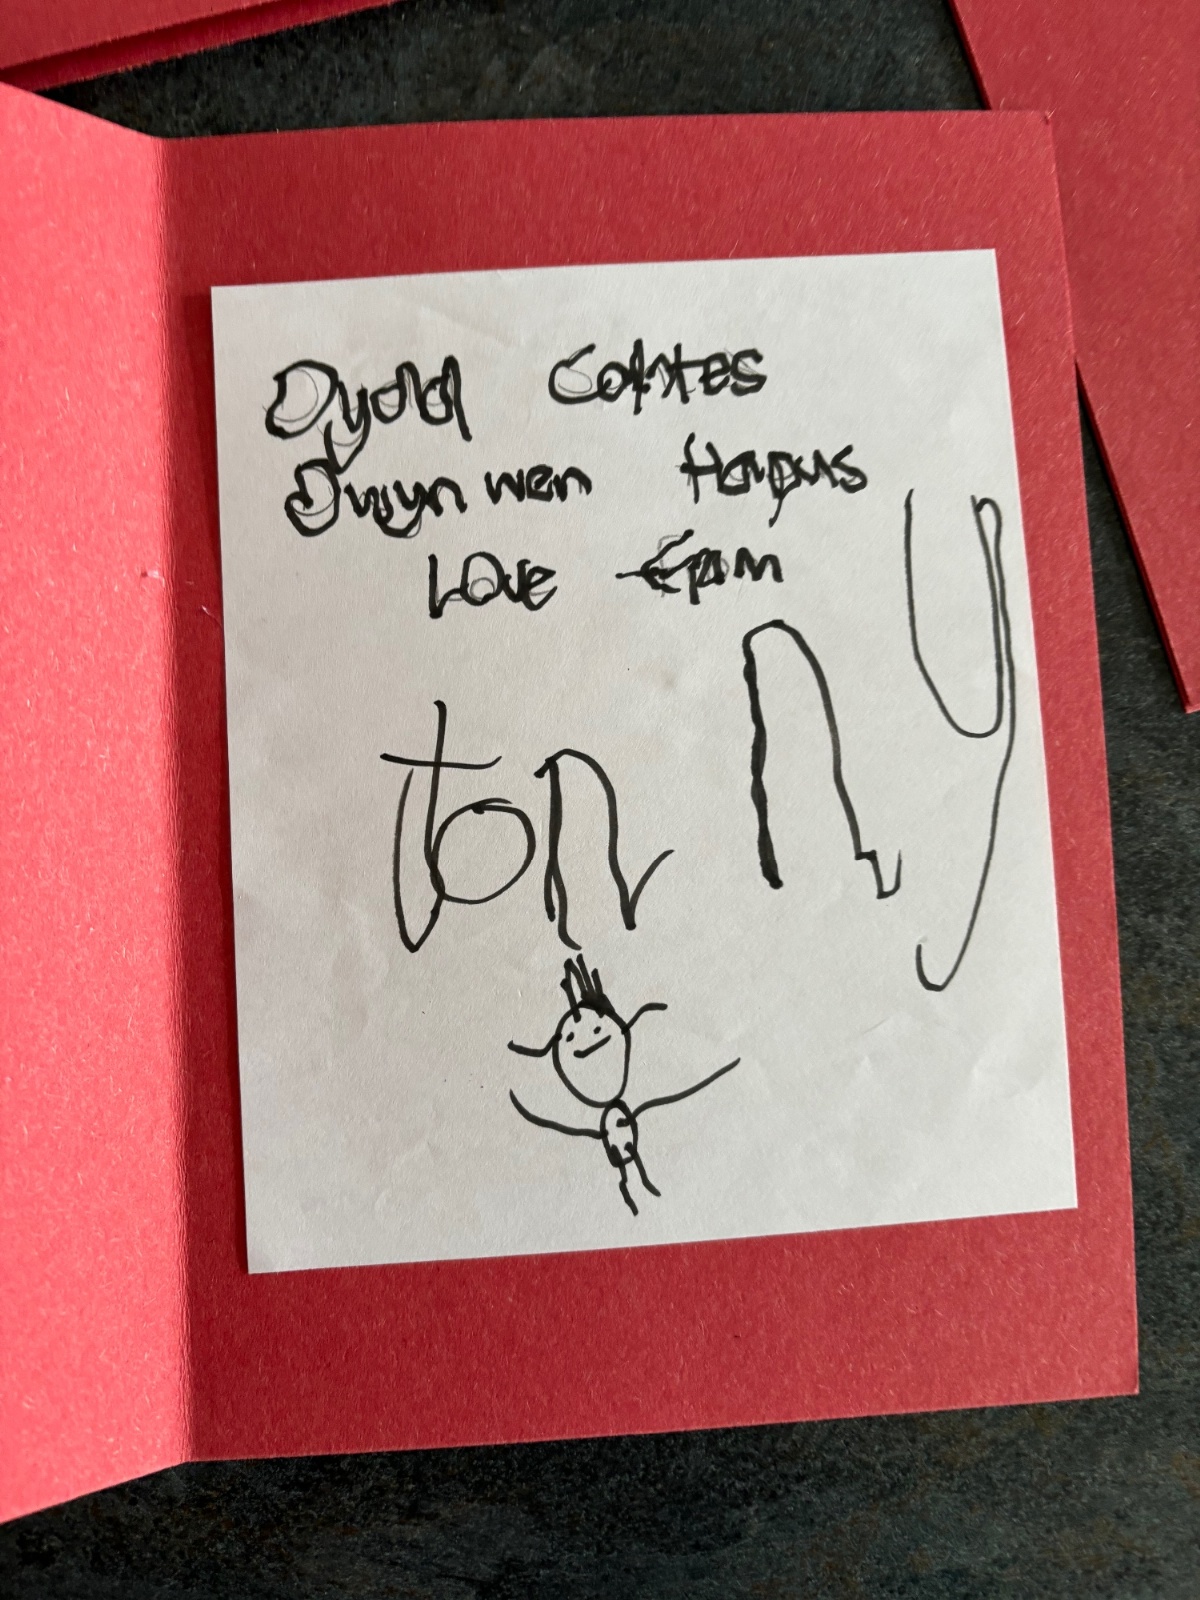 Dydd Santes
Dwynwen Hapus
Love from
tonny